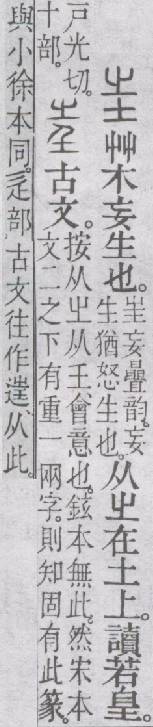 㞷艸木妄生也。㞷妄曡韵。妄生猶怒生也。从㞢在土上。讀若皇。
戶光切。十部。𡉚古文。按从㞢从王、會意也。鉉本無此。然宋本文二之下有重一兩字。則知固有此篆。
與小徐本同。辵部、古文往作𨓹、从此。